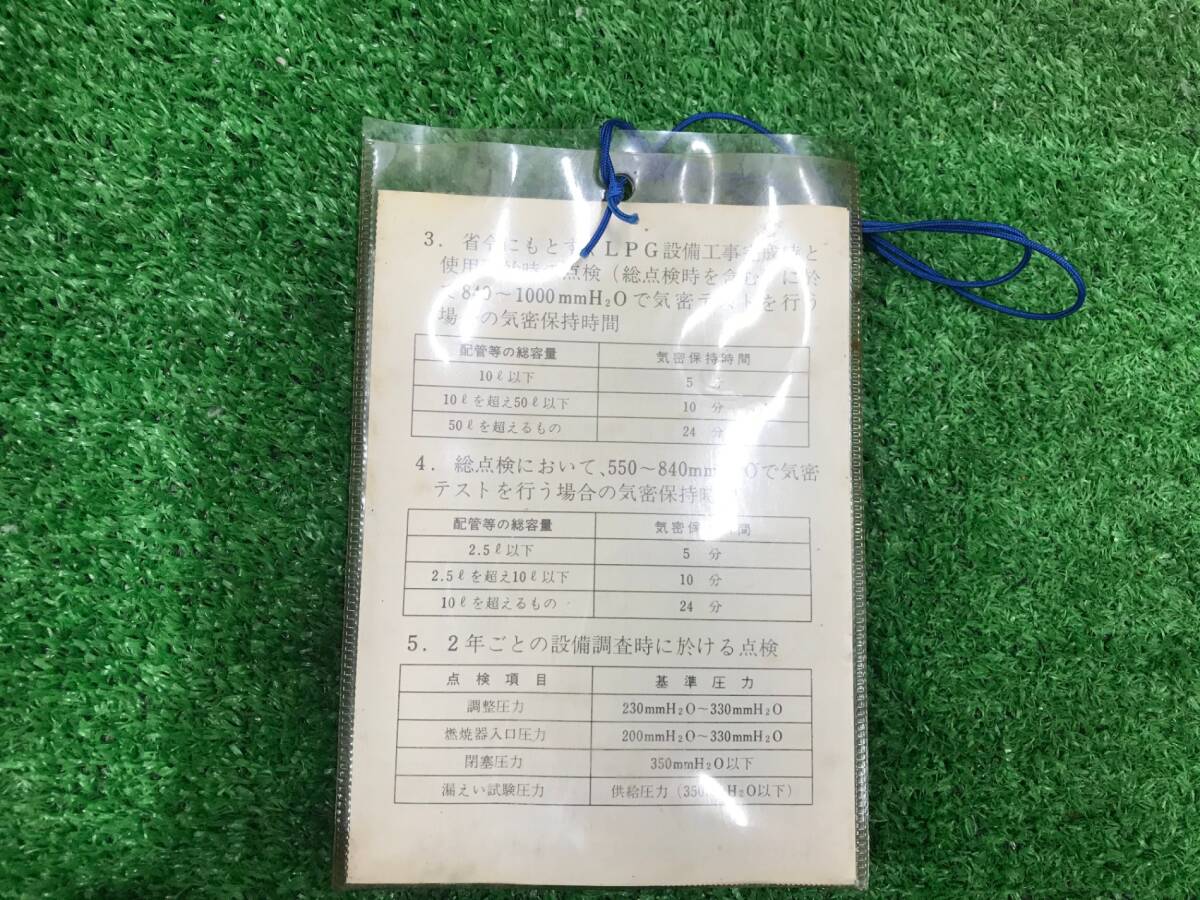 3. 省令にもとず LPG設備工事完成時と
使用 時 点検（総点検時を含む に於
て840～1000mmH₂Oで気密テストを行う
場 の気密保持時間
配管等の総容量 気密保持時間
10ℓ以下 5 分
10ℓを超え50ℓ以下 10 分
50ℓを超えるもの 24 分
4. 総点検において、550～840mm Oで気密
テストを行う場合の気密保持時
配管等の総容量 気密保 間
2.5ℓ以下 5 分
2.5ℓを超え10ℓ以下 10 分
10ℓを超えるもの 24 分
5. 2年ごとの設備調査時に於ける点検
点検項目 基準圧力
調整圧力 230mmH₂O～330mmH₂O
燃焼器入口圧力 200mmH₂O～330mmH₂O
閉塞圧力 350mmH₂O以下
漏えい試験圧力 供給圧力（350 H₂O以下）